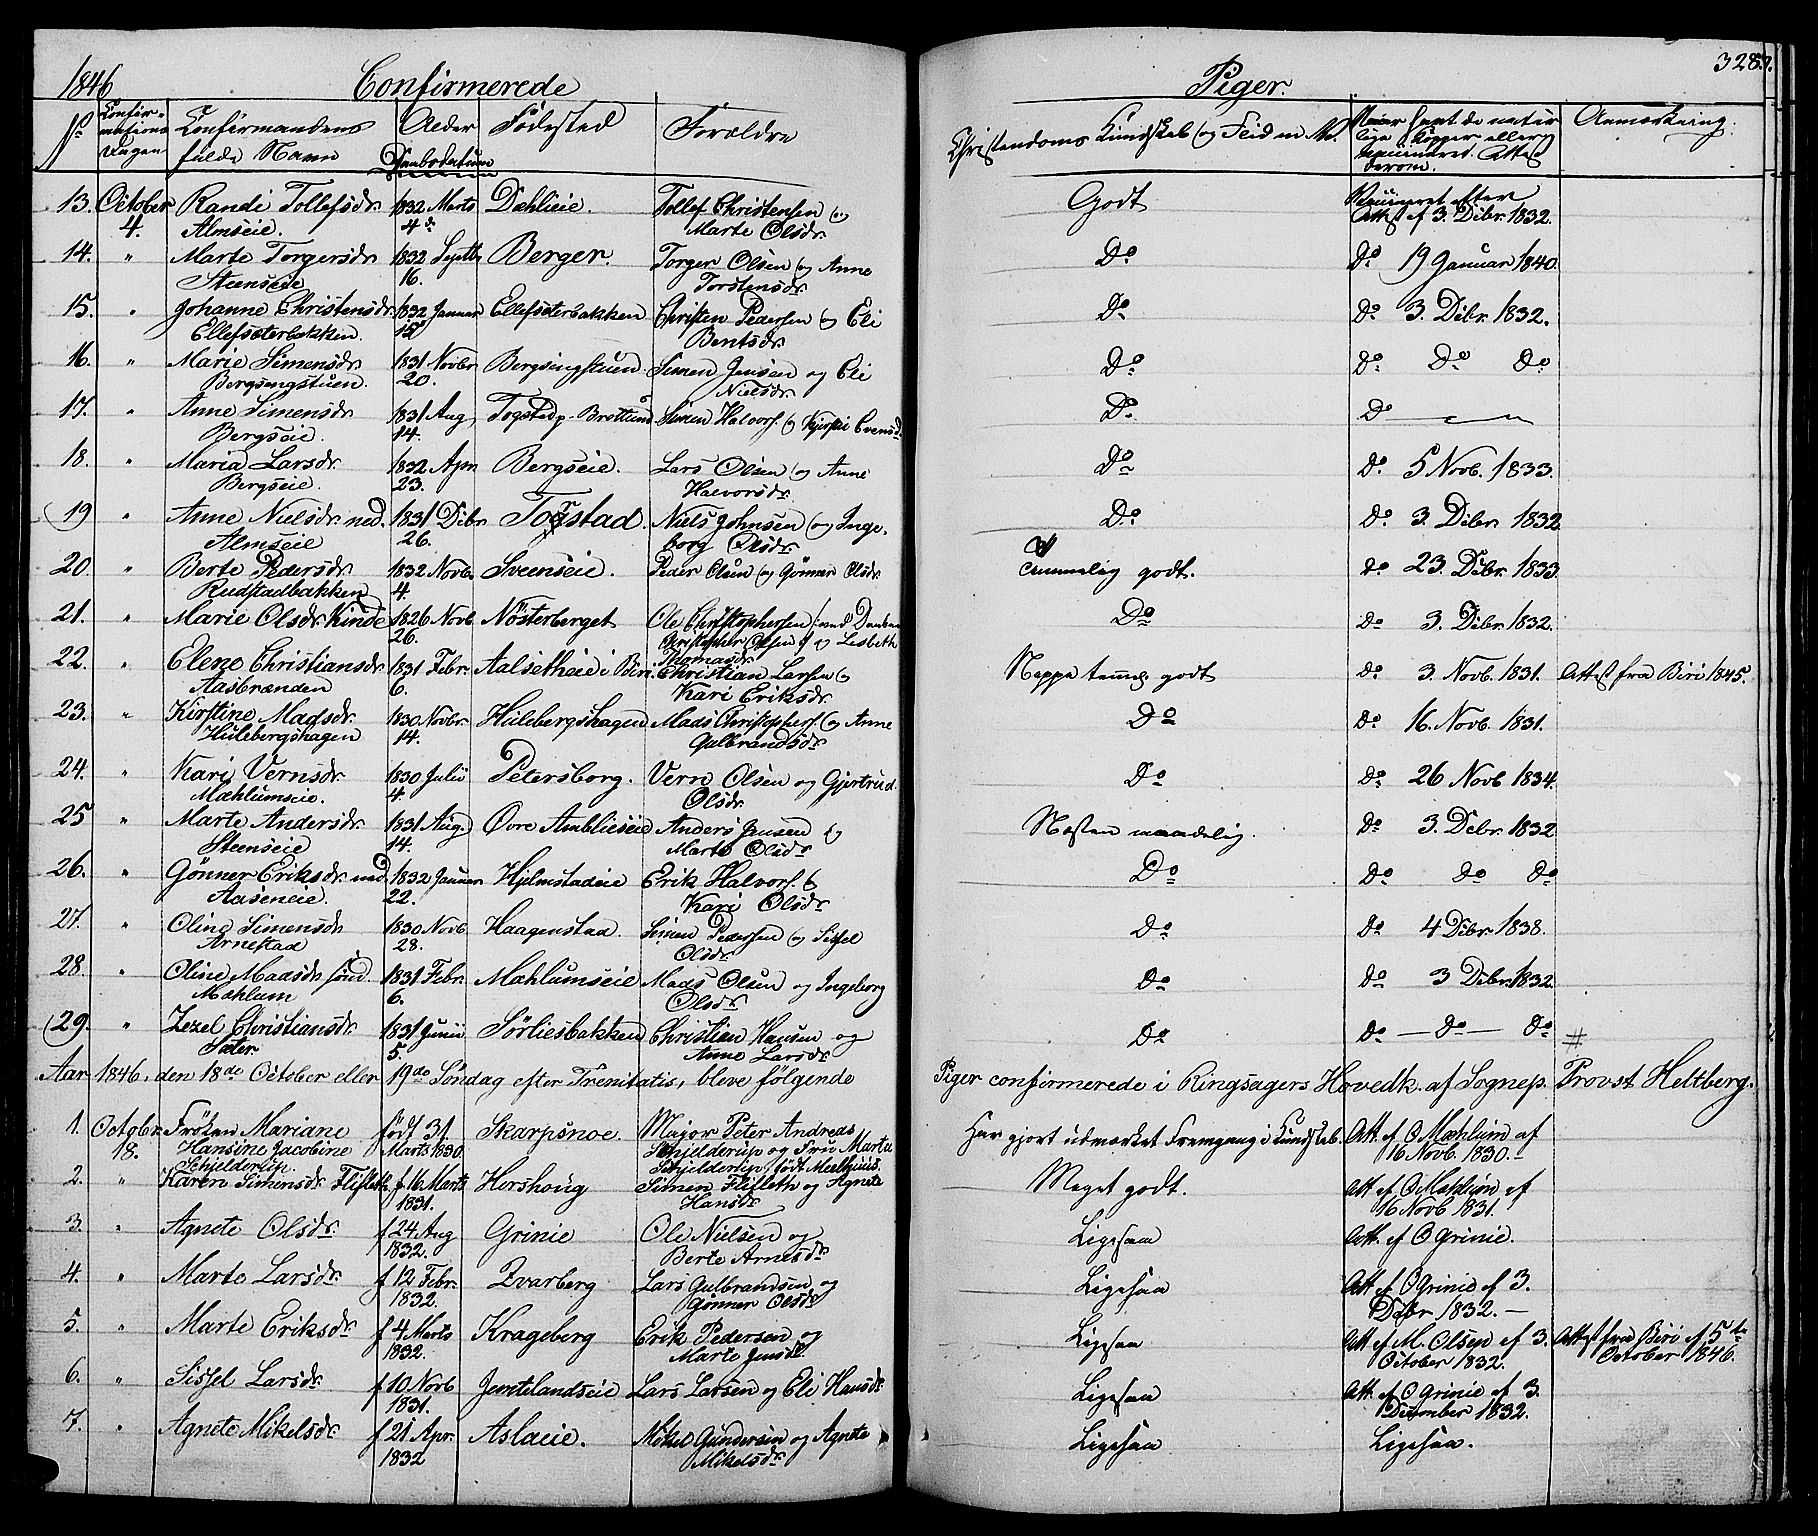 1846 Confirmerede Piger. 328.
No Confirmations Dagen Confirmandens fulde Navn Alder Daabsdatum Fødested Forældre Christendoms Kundskab og Flid m. V. havt de naturlige Kopper eller vaccineret. Attest derom. Anmærkning.
13. October 4. Randi Tollefsdr. Almseie. 1832 Marts 4de Dæhlieie. Tollef Christensen og Marte Olsdr. Godt Vaccineret efter Att. af 3. Dcbr. 1832.
14. " Marte Torgersdr. Steenseie 1832 Septb. 16. Berger. Torger Olsen og Anne Torstensdr. Do Do 19 Januar 1840.
15. " Johanne Christensdr. Ellefsæterbakken. 1832 Januar 15de Ellefsæterbakken Christen Pedersen og Eli Bentsdr. Do Do 3. Dcbr. 1832.
16. " Marie Simensdr. Bergsengstuen. 1831 Novbr. 20. Bergsengstuen. Simen Jensen og Eli Nielsdr. Do Do Do Do
17. " Anne Simensdr. Bergseie. 1831 Aug. 14. Togstad p. Brøttum Simen Halvors. og Kjersti Evensd. Do Do
18. " Maria Larsdr. Bergseie. 1832 Apr. 23. Bergseie. Lars Olsen og Anne Halvorsdr. Do Do 5 Novb. 1833.
19 " Anne Nielsdr. ned. Almseie 1831 Dcbr. 26. Torstad. Niels Johnsen og Ingeborg Olsdr. Do Do 3. Dcbr. 1832
20. " Berte Pedersdr. Rudstadbakken 1832 Novb. 4. Sveenseie. Peder Olsen og Gønner Olsdr. Temmelig godt. Do 23. Dcbr. 1833.
21. " Marie Olsdr. Kinde 1826 Novb. 26. Nösterberget Ole Christophersen /: ved Daaben Christopher Olsen :/ og Lisbeth Thomasdr. Do Do 3. Dcbr. 1832.
22. " Elene Christiansdr. Aasbrænden 1831 Febr. 6. Aalsetheie i Biri. Christian Larsen og Kari Eriksdr. Neppe temmel. godt Do 3. Novb. 1831. Attest fra Biri 1845.
23. " Kirstine Madsdr. Hulebergshagen 1830 Novbr. 14. Hulebergshagen Mads Christophers. og Anne Gulbrandsdr. Do Do 16. Novb. 1831.
24. " Kari Vernsdr. Mæhlumseie. 1830 Julii 4. Petersborg. Vern Olsen og Gjertrud Olsdr. Do Do 26 Novb. 1834.
25 " Marte Andersdr. Steenseie 1831 Aug. 14. Øvre Amblieseie Anders Jensen og Marte Olsdr. Næsten maadelig. Do 3. Dcbr. 1832
26. " Gønner Eriksdr. ned. Aaseneie. 1832 Januar 22. Hjelmstadeie Erik Halvors. og Kari Olsdr. Do Do Do Do
27. " Oline Simensdr. Arnestad 1830 Novb. 28. Haagenstad. Simen Pedersen og Sissel Olsdr. Do Do 4 Dcbr. 1838.
28. " Oline Madsdr. sønd. Mæhlum 1831 Febr. 6. Mæhlumseie Mads Olsen og Ingeborg Olsdr. Do Do 3 Dcbr. 1832
29. " Zezel Christiansdr. Sæter. 1831 Junii 5. Sörliesbakken Christian Hansen og Anne Larsdr. Do Do — Do — Do #
Aar 1846, den 18de October eller 19de Søndag efter Trenitatis, bleve følgende Piger confirmerede i Ringsagers Hovedk. af Sognep. Provst Heltberg.
1. October 18. Frøken Mariane Hansine Jacobine Schjelderup. født 31. Marts 1830. Skarpsnoe. Major Peter Andreas Schjelderup og Fru Marta Schjelderup født Meelhuus. Har gjort udmærket Fremgang i Kundskab. Att. af O Mæhlum af 16 Novb. 1830.
2. " Karen Simensdr. Flifleth f. 16 Marts 1831. Hershoug Simen Flifleth og Agnete Hansdr. Meget godt. Att. af O Mæhlum af 16 Novb. 1831.
3. " Agnete Olsdr. f. 24 Aug 1832. Grinie Ole Nielsen og Berte Arnesdr. Ligesaa Att. af O Grinie.
4. " Marte Larsdr. f 12 Febr. 1832. Zvarberg Lars Gulbrandsen og Gønner Olsdr. Ligesaa Att. af O Grinie af 3. Decbr. 1832. —
5. " Marte Eriksdr. f 4 Marts 1832. Krageberg Erik Pedersen og Marte Jensdr. Ligesaa Att. af M. Olsen af 3. October 1832. Attest fra Biri af 5te October 1846.
6. " Sissel Larsdr. f 10 Novb 1831. Jemtelandseie Lars Larsen og Eli Hansdr. Ligesaa Att. af O Grinie af 3. December 1832.
7. " Agnete Mikelsdr. f 21 Apr. 1832 Aslaeie. Mikel Gundersen og Agnete Mikelsdr. Ligesaa Ligesaa.